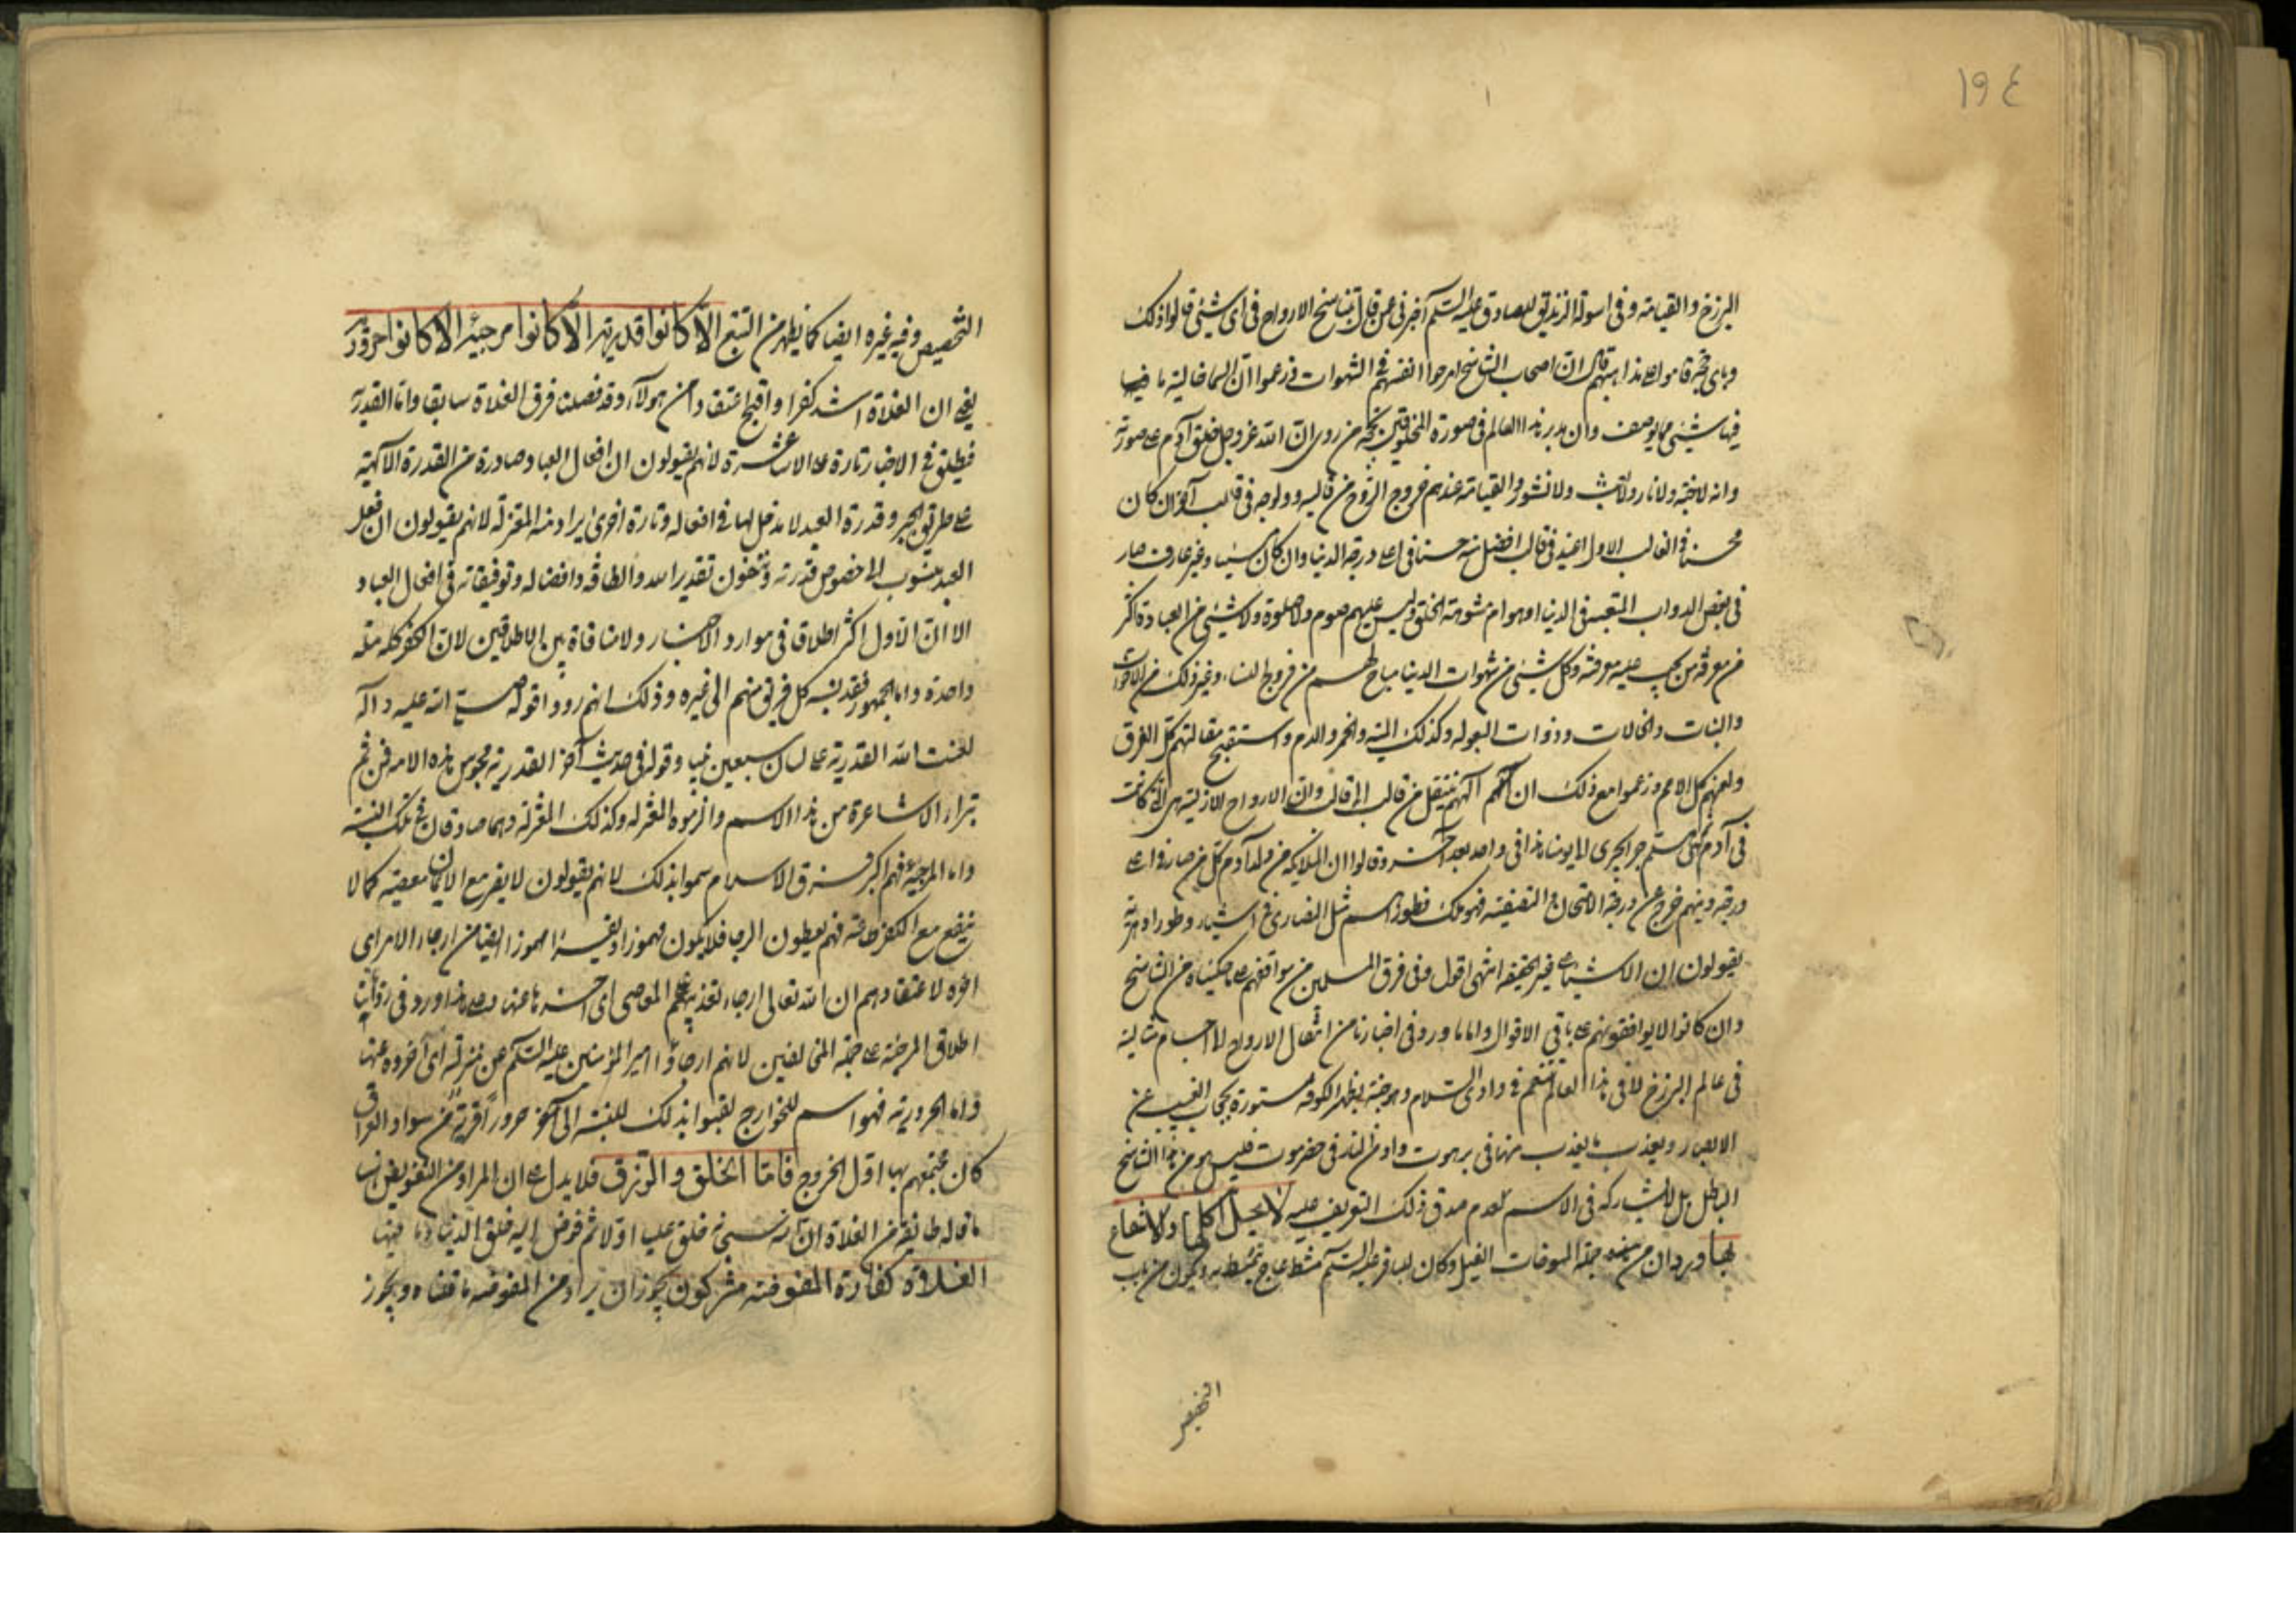 ١٩٤
البرزخ والقيامة وفى اسولة الزنديق للصادق عليه السلم اخبرنى عمن قال بتناسخ الارواح فى اى شيئى قالوا ذلك
وباى حجة قاموا على مذاهبهم قال ان اصحاب التناسخ امرجوا انفسهم فى الشهوات فزعموا ان السما خالية ما فيها
فيها شيئى مما يوصف وان مدبر هذا العالم فى صورة المخلوقين بحجة من روى ان الله عز وجل خلق آدم على صورته
وانه لا جنة ولا نار ولا بعث ولا نشور والقيامة عندهم خروج الروح من قالبه وولوجه فى قالب آخر ان كان
محسنا فى القالب الاول اعيد فى قالب افضل منه حسنا فى اعلى درجة الدنيا وان كان مسيئا وغير عارف صار
فى بعض الدواب المتعبة فى الدنيا او هوام مشوهة الخلق وليس عليهم صوم ولا صلوة ولا شيئى من العبادة اكثر
من معرفة من يجب عليه معرفته وكل شيئى من شهوات الدنيا مباح لهم من فروج النساء وغير ذلك من الاخوات
والبنات والخالات وذوات البعولة وكذلك الميتة والخمر والدم واستقبح مقالتهم كل الفرق
ولعنهم كل الامم وزعموا مع ذلك ان آلههم ينتقل من قالب الى قالب وان الارواح الازلية هى التى كانت
فى آدم ثم هلم جرا تجرى الى يومنا هذا فى واحد بعد آخر وقالوا ان الملايكة من ولد آدم كل من صار فى اعلى
درجة دينهم خرج عن درجة الامتحان والتصفية فهو ملك فطورا مثل النصارى فى اشياء وطورا دهرية
يقولون ان الاشياء على غير الحقيقة انتهى اقول وفى فرق المسلمين من يوافقهم على ما حكيناه من التناسخ
وان كانوا لا يوافقونهم على باقى الاقوال واما ما ورد فى اخبارنا من انتقال الارواح الى اجسام مثالية
فى عالم البرزخ لا فى هذا العالم تنعم فى وادى السلام وهو جنة بظهر الكوفة مستورة بحجاب الغيب عن
الابصار ويعذب ما يعذب منها فى برهوت واد من النار فى حضرموت فليس هو من هذا التناسخ
الباطل بل لا يشاركه فى الاسم لعدم صدق ذلك التعريف عليه لا يحل اكلها ولا انتفاع
بها ورد ان من جملة المسوخات الفيل وكان لباقر عليه السلم مشط عاج يتمشط به ويكون من باب
التخصيص وفيه غيره ايضا كما يظهر من التتبع الا كانوا قدرية الا كانوا مرجئة الا كانوا حرورية
يعنى ان الغلاة اشد كفرا واقبح اعتقادا من هولآء وقد فصلنا فرق الغلاة سابقا واما القدرية
فيطلق فى الاخبار تارة على الاشاعرة لانهم يقولون ان افعال العباد صادرة من القدرة الآلهية
على طريق الجبر وقدرة العبد لا مدخل لها فى افعاله وتارة اخرى يراد منه المعتزلة لانهم يقولون ان فعل
العبد منسوب الى خصوص قدرته وينفون تقدير الله والطافه وافضاله وتوفيقاته فى افعال العباد
الا ان الاول اكثر اطلاق فى موارد الاخبار ولا منافاة بين الاطلاقين لان الكفر كله ملة
واحدة واما الجمهور فقد نسبه كل فريق منهم الى غيره وذلك انهم رووا قوله صلى الله عليه وآله
لعنت الله القدرية على لسان سبعين نبيا وقوله فى حديث آخر القدرية مجوس هذه الامة فمن ثم
تبراء الاشاعرة من هذا الاسم والزموه المعتزلة وكذلك المعتزلة وهما صادقان فى تلك النسبة
واما المرجئة فهم اكبر فرق الاسلام سموا بذلك لانهم يقولون لا يضر مع الايمان معصية كما لا
ينفع مع الكفر طاعة فهم يعطون الرجا فلا يكون مهموزا وقيل مهموزا ايضا من ارجاء الامر اى
اخره لاعتقادهم ان الله تعالى ارجاء تعذيبهم على المعاصى اى اخره عنهم وعلى هذا ورد فى رواية
اطلاق المرجئة على جملة المخالفين لانهم ارجاؤا امير المؤمنين عليه السلم عن منزلته اى اخروه عنها
واما الحرورية فهو اسم للخوارج لقبوا بذلك للنسبة الى حرورآء قرية من سواد العراق
كان مجتمعهم بها اول الخروج فاما الخلق والرزق فلا يدل على ان المراد من التفويض
ما قاله طايفة من الغلاة ان الله سبحانه خلق عليا اولا ثم فوض اليه خلق الدنيا وما فيها
الغلاة كفار والمفوضة مشركون يجوز ان يراد من المفوضة ما قلناه ويجوز
التخصيص